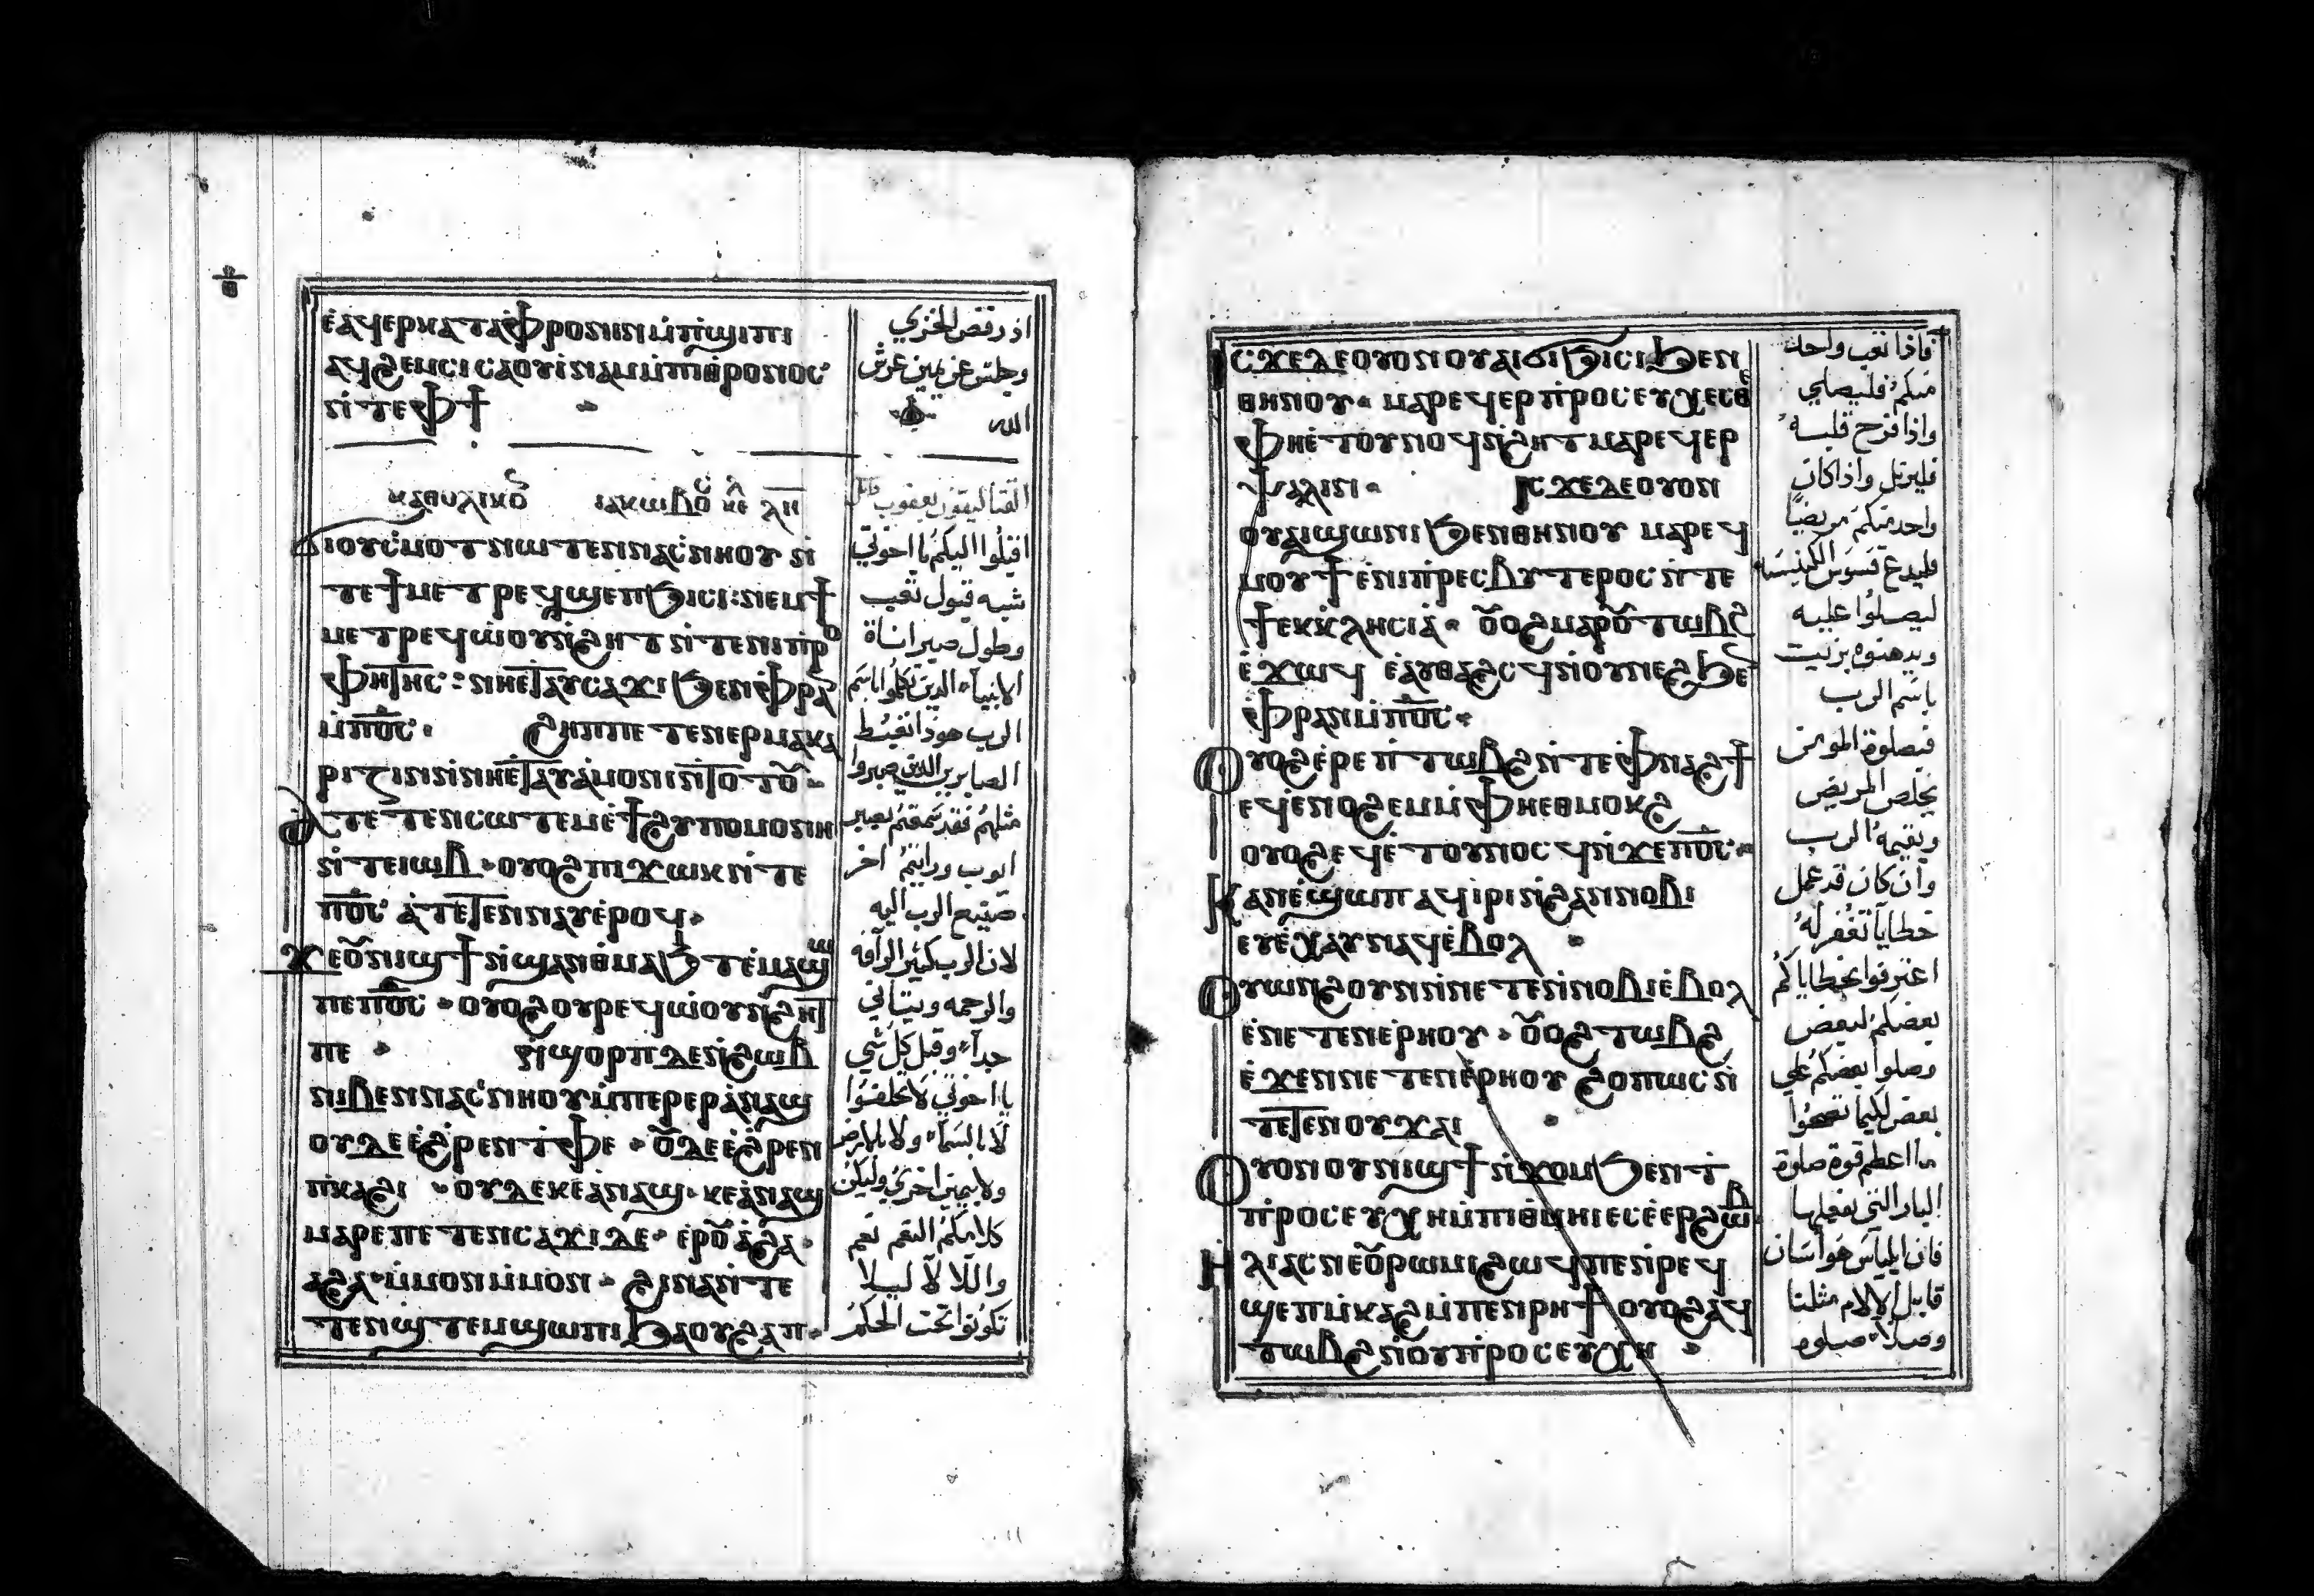 ⲉ̀ⲁϥⲉⲣⲕⲁⲧⲁⲫ̀ⲣⲟⲛⲓⲛ ⲙ̀ⲡⲓϣⲓⲡⲓ
ⲁϥϩⲉⲙⲥⲓ ⲥⲁⲟⲩⲓ̀ⲛⲁⲙ ⲙ̀ⲡⲓⲑ̀ⲣⲟⲛⲟⲥ
ⲛ̀ⲧⲉ ⲫϯ
ⲕⲁⲑⲩⲗⲓⲕⲟ ⲓⲁⲕⲱⲃⲟⲥ
ϭⲓ ⲟⲩⲥ̀ⲙⲟⲧ ⲛⲱⲧⲉⲛ ⲛⲁⲥ̀ⲛⲏⲟⲩ ⲛ̀
ⲧⲉ ϯⲙⲉⲧⲣⲉϥϣⲉⲡϧⲓⲥⲓ: ⲛⲉⲙ ϯ
ⲙⲉⲧⲣⲉϥⲱ̀ⲟⲩⲛ̀ϩⲏⲧ ⲛ̀ⲧⲉ ⲛⲓⲡ̀ⲣⲟ
ⲫⲏⲧⲏⲥ: ⲛⲏⲉ̀ⲧⲁⲩⲥⲁϫⲓ ϧⲉⲛ ⲫ̀ⲣⲁⲛ
ⲙ̀ⲡ⳪. ϩⲏⲡⲡⲉ ⲧⲉⲛⲉⲣⲙⲁⲕⲁ
ⲣⲓⲍⲓⲛ ⲛ̀ⲛⲏⲉ̀ⲧⲁⲩⲁ̀ⲙⲟⲛⲓ ⲛ̀ⲧⲟⲧⲟⲩ.
ⲁ̀ⲧⲉⲧⲉⲛⲥⲱⲧⲉⲙ ⲉ̀ϯϩⲩⲡⲟⲙⲟⲛⲏ
ⲛ̀ⲧⲉ ⲓⲱⲃ. ⲟⲩⲟϩ ⲡⲓϫⲱⲕ ⲛ̀ⲧⲉ
ⲡ⳪ ⲁ̀ⲧⲉⲧⲉⲛⲛⲁⲩ ⲉ̀ⲣⲟϥ.
ϫⲉ ⲟⲩⲛⲓϣϯ ⲛ̀ϣⲁⲛⲑ̀ⲙⲁϧⲧ ⲉ̀ⲙⲁϣⲱ
ⲡⲉ ⲡ⳪. ⲟⲩⲟϩ ⲟⲩⲣⲉϥⲱ̀ⲟⲩⲛ̀ϩⲏⲧ
ⲡⲉ. ϧ̀ϣⲟⲣⲡ ⲇⲉ ⲛ̀ϩⲱⲃ
ⲛⲓⲃⲉⲛ ⲛⲁⲥ̀ⲛⲏⲟⲩ ⲙ̀ⲡⲉⲣⲉⲣⲁ̀ⲛⲁϣ
ⲟⲩⲇⲉ ⲉ̀ϩ̀ⲣⲉⲛ ⲧ̀ⲫⲉ. ⲟⲩⲇⲉ ⲉ̀ϩ̀ⲣⲉⲛ
ⲡ̀ⲕⲁϩⲓ. ⲟⲩⲇⲉ ⲕⲉⲁ̀ⲛⲁϣ. ⲕⲉⲁ̀ⲛⲁϣ
ⲙⲁⲣⲉ ⲡⲉⲧⲉⲛⲥⲁϫⲓ ⲇⲉ. ⲉⲣⲟⲩ ⲁ̀ϩⲁ.
ⲁϩⲁ. ⲙ̀ⲙⲟⲛ ⲙ̀ⲙⲟⲛ. ϩⲓⲛⲁ ⲛ̀ⲧⲉ
ⲧⲉⲛϣⲧⲉⲙϣⲱⲡⲓ ϧⲁ ⲟⲩϩⲁⲡ.
اذ رفض للخزي
وجلس عن يمين عرش
الله
القتاليقون يعقوب
اقبلوا اليكم يا اخوتي
شبه قبول تعب
وطول صبر اناة
الانبياء الذين تكلموا باسم
الرب هوذا نغبط
الصابرين الذين صبروا
مثلهم فقد سمعتم بصبر
ايوب ورايتم اخر
صنيع الرب اليه
لان الرب كثير الرآفه
والرحمه ويتآني
جدآ وقبل كل شي
يا اخوتي لا تحلفوا
لا بالسماء ولا بالارض
ولا بيمين اخري وليكن
كلامكم النعم نعم
واللا لا ليلا
تكونوا تحت الحكم
ⲓⲥϫⲉ ⲇⲉ ⲟⲩⲟⲛ ⲟⲩⲁⲓ ϭⲓϧⲓⲥⲓ ϧⲉⲛ
ⲑⲏⲛⲟⲩ. ⲙⲁⲣⲉϥⲉⲣⲡ̀ⲣⲟⲥⲉⲩⲭⲉⲥⲑⲉ
ⲫⲏⲉ̀ⲧⲟⲩⲛⲟϥ ⲛ̀ϩⲏⲧ ⲙⲁⲣⲉϥⲉⲣ
ⲯⲁⲗⲓⲛ. ⲓⲥϫⲉ ⲇⲉ ⲟⲩⲟⲛ
ⲟⲩⲁⲓ ϣⲱⲛⲓ ϧⲉⲛ ⲑⲏⲛⲟⲩ ⲙⲁⲣⲉϥ
ⲙⲟⲩϯ ⲉ̀ⲛⲓⲡ̀ⲣⲉⲥⲃⲩⲧⲉⲣⲟⲥ ⲛ̀ⲧⲉ
ϯⲉⲕⲕ̀ⲗⲏⲥⲓⲁ̀. ⲟⲩⲟϩ ⲙⲁⲣⲟⲩⲧⲱⲃϩ
ⲉ̀ϫⲱϥ ⲉ̀ⲁⲩⲑⲁϩⲥϥ ⲛ̀ⲟⲩⲛⲉϩ ϧⲉⲛ
ⲫ̀ⲣⲁⲛ ⲙ̀ⲡ⳪.
ⲟⲩⲟϩ ⲉ̀ⲣⲉ ⲡ̀ⲧⲱⲃϩ ⲛ̀ⲧⲉ ⲫ̀ⲛⲁϩϯ
ⲉϥⲉ̀ⲛⲟϩⲉⲙ ⲙ̀ⲫⲏⲉⲑⲙⲟⲕϩ
ⲟⲩⲟϩ ⲉϥⲉ̀ⲧⲟⲩⲛⲟⲥϥ ⲛ̀ϫⲉ ⲡ⳪.
ⲕⲁⲛ ⲉ̀ϣⲱⲡ ⲁϥⲓ̀ⲣⲓ ⲛ̀ϩⲁⲛⲛⲟⲃⲓ
ⲉⲩⲉ̀ⲭⲁⲩ ⲛⲁϥ ⲉ̀ⲃⲟⲗ.
ⲟⲩⲱⲛϩ ⲟⲩⲛ ⲛ̀ⲛⲉⲧⲉⲛⲛⲟⲃⲓ ⲉ̀ⲃⲟⲗ
ⲉ̀ⲛⲉⲧⲉⲛⲉ̀ⲣⲏⲟⲩ. ⲟⲩⲟϩ ⲧⲱⲃϩ
ⲉ̀ϫⲉⲛ ⲛⲉⲧⲉⲛⲉ̀ⲣⲏⲟⲩ ϩⲟⲡⲱⲥ ⲛ̀
ⲧⲉⲧⲉⲛⲟⲩϫⲁⲓ.
ⲟⲩⲟⲛ ⲟⲩⲛⲓϣϯ ⲛ̀ϫⲟⲙ ϧⲉⲛ ϯ
ⲡ̀ⲣⲟⲥⲉⲩⲭⲏ ⲙ̀ⲡⲓⲑ̀ⲙⲏⲓ ⲉⲥⲉ̀ⲉⲣϩⲱⲃ.
ⲏⲗⲓⲁⲥ ⲛⲉ ⲟⲩⲣⲱⲙⲓ ϩⲱϥ ⲡⲉ ⲛ̀ⲣⲉϥ
ϣⲉⲡⲙ̀ⲕⲁϩ ⲙ̀ⲡⲉⲛⲣⲏϯ ⲟⲩⲟϩ ⲁϥ
ⲧⲱⲃϩ ⲛ̀ⲟⲩⲡ̀ⲣⲟⲥⲉⲩⲭⲏ.
فاذا تعب واحد
منكم فليصلي
واذا فرح قلبه
فليرتل واذا كان
واحد منكم مريضا
فليدع قسوس الكنيسه
ليصلوا عليه
ويدهنوه بزيت
باسم الرب
فبصلوة المومن
يخلص المريض
ويقيمه الرب
وان كان قد عمل
خطايا تغفر له
اعترفوا بخطاياكم
بعضكم لبعض
وصلوا بعضكم علي
بعض لكيما تصحوا
ما اعظم قوة صلوة
البار التي يفعلها
فان ايلياس هو انسان
قابل الالام مثلنا
وصلا صلوه